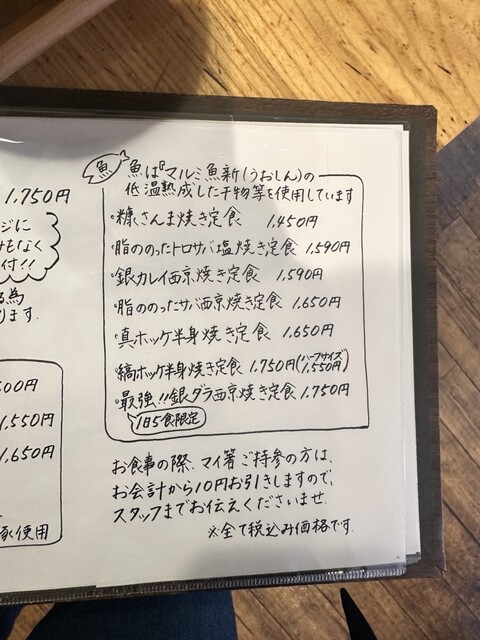 1,750円
ジに
みもなく
付!!
る為
ります.
500円
1,550円
1,650円
豚使用
魚
魚は『マルミ魚新(うおしん)の
低温熟成した干物等を使用しています
・糠さんま焼き定食 1,450円
・脂ののったトロサバ塩焼き定食 1,590円
・銀カレイ西京焼き定食 1,590円
・脂ののったサバ西京焼き定食 1,650円
・真ホッケ半身焼き定食 1,650円
・縞ホッケ半身焼き定食 1,750円(ハーフサイズ1,550円)
・最強!!銀ダラ西京焼き定食 1,750円
1日5食限定
お食事の際、マイ箸ご持参の方は、
お会計から10円お引きしますので、
スタッフまでお伝えくださいませ.
※全て税込み価格です.